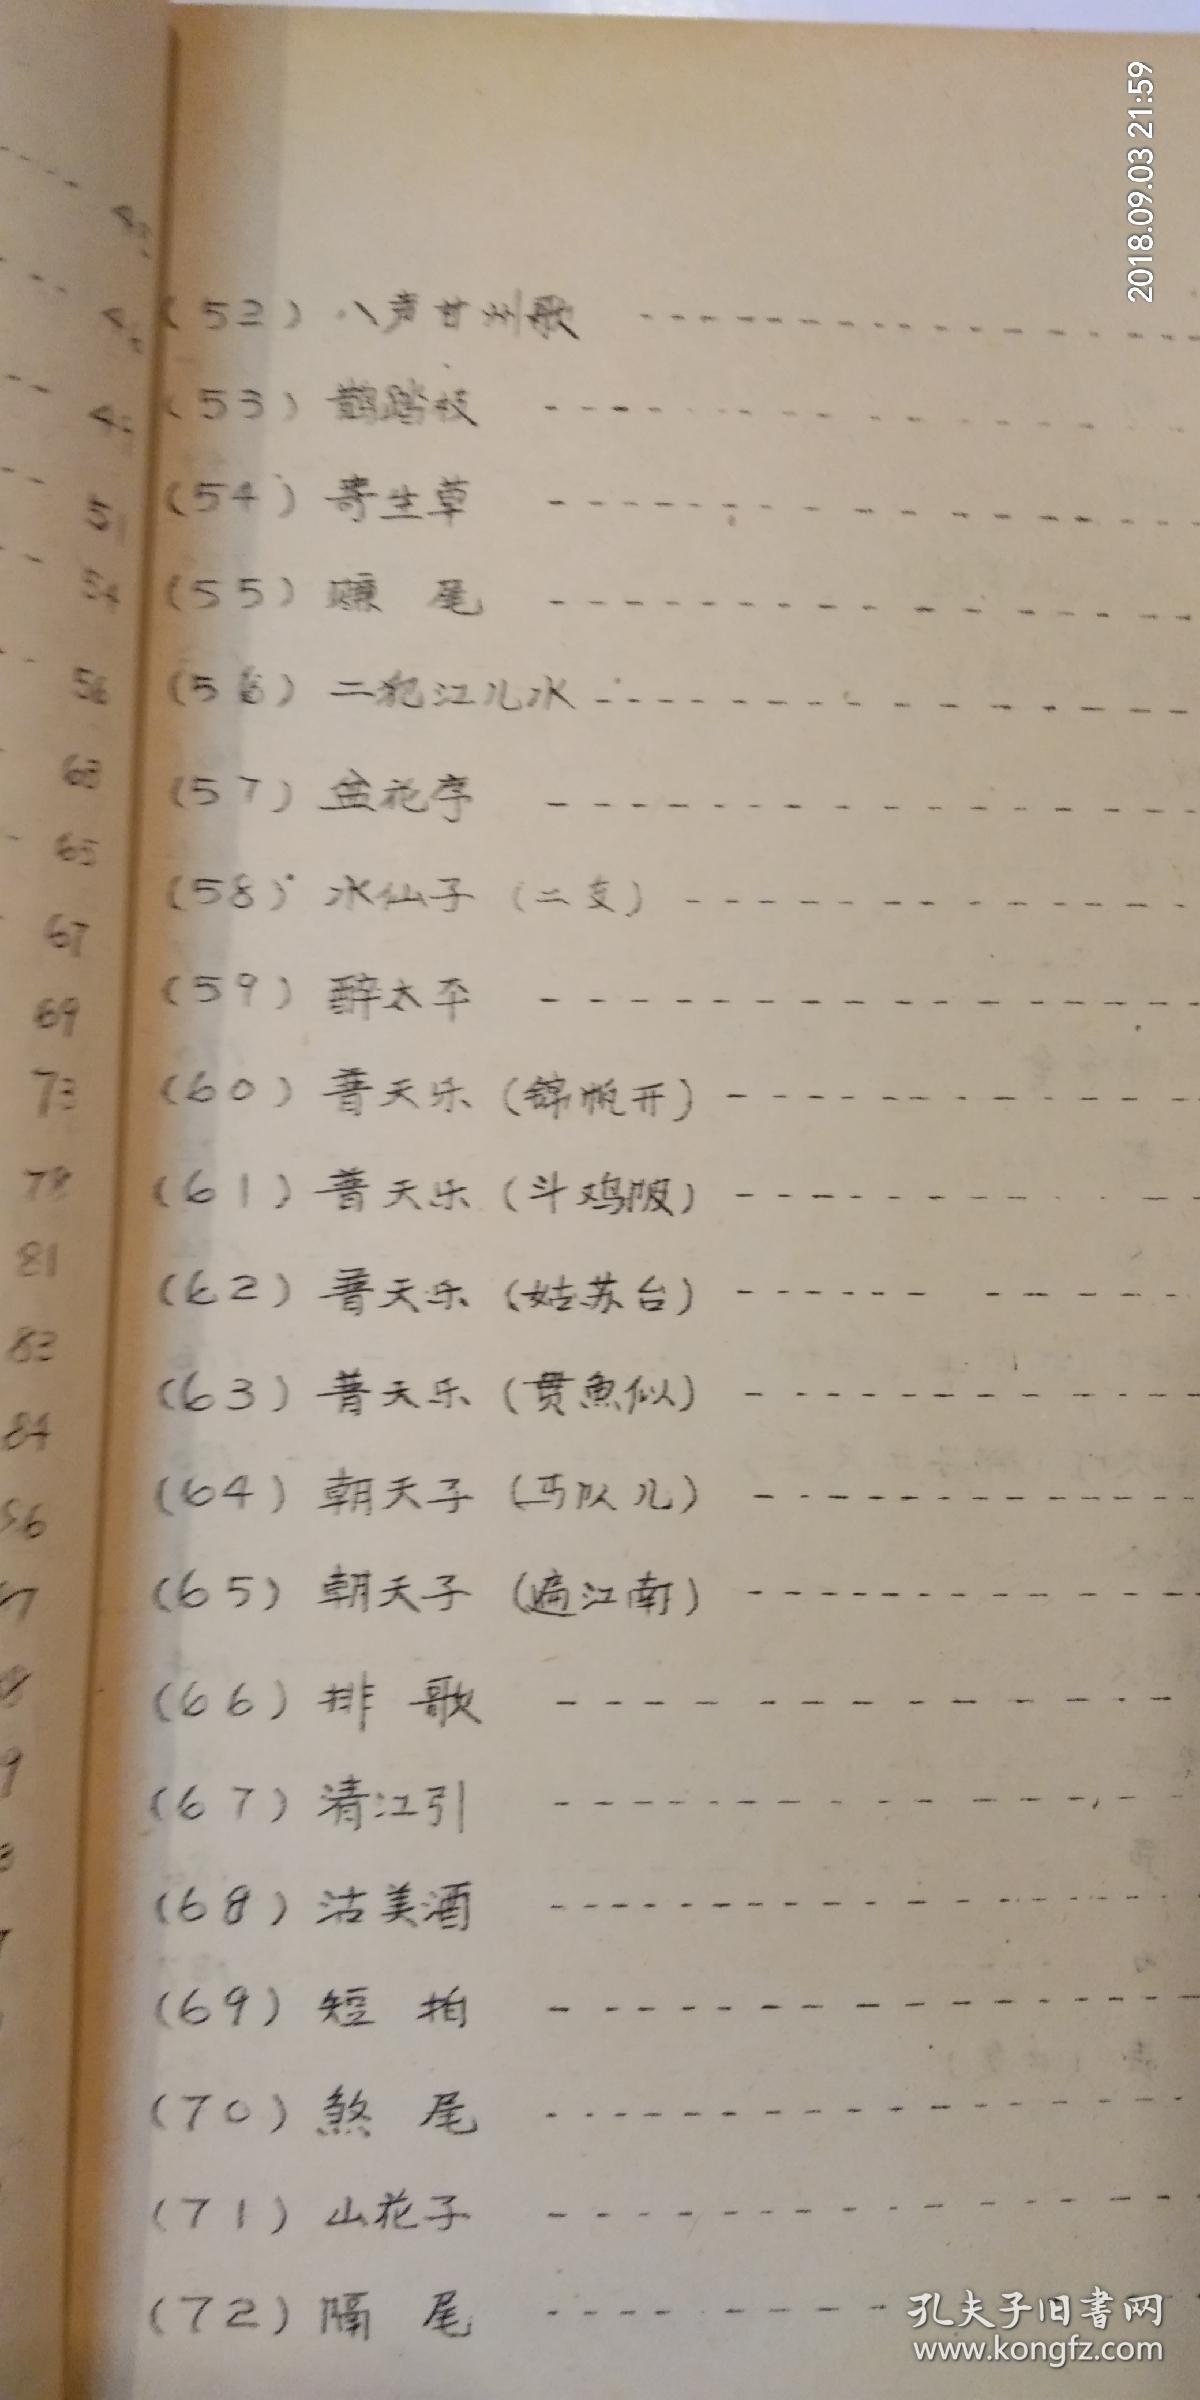 2018.09.03 21:59
51
54
56
63
65
67
69
73
78
81
82
84
(52) 八声甘州歌
(53) 鹊踏枝
(54) 寄生草
(55) 赚 尾
(56) 二犯江儿水
(57) 盆花序
(58) 水仙子 (二支)
(59) 醉太平
(60) 普天乐 (锦帆开)
(61) 普天乐 (斗鸡陂)
(62) 普天乐 (姑苏台)
(63) 普天乐 (贯鱼似)
(64) 朝天子 (马队儿)
(65) 朝天子 (遍江南)
(66) 排 歌
(67) 清江引
(68) 沽美酒
(69) 短 拍
(70) 煞 尾
(71) 山花子
(72) 隔 尾
孔夫子旧書网
www.kongfz.com